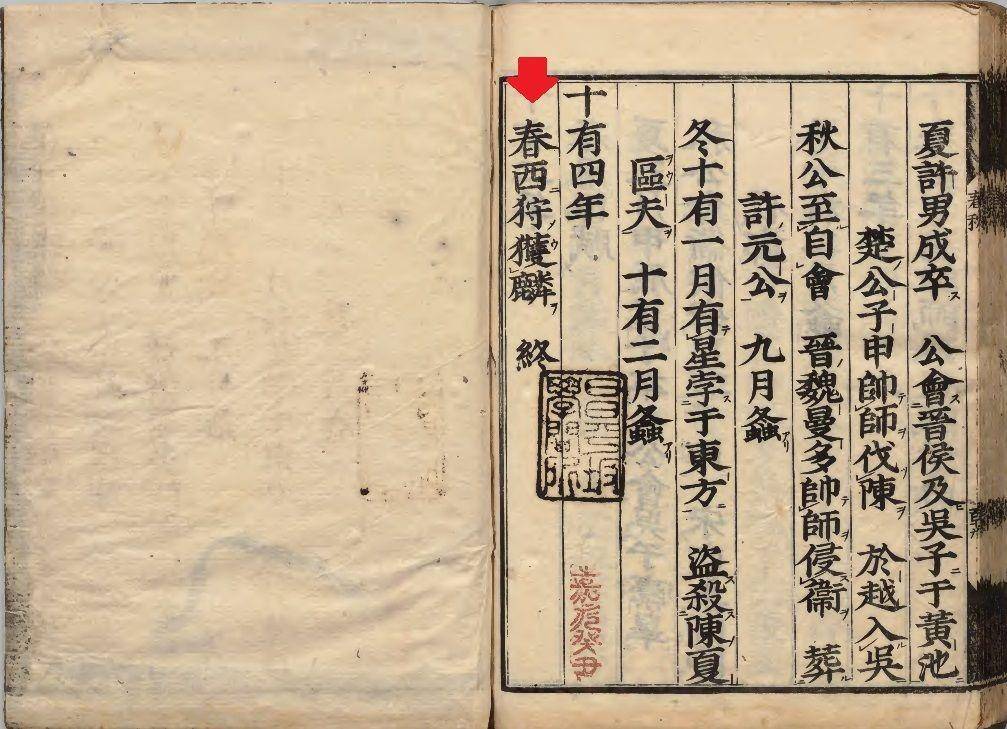 春秋
夏許男成卒 公會晉侯及吳子于黃池
楚公子申帥師伐陳 於越入吳
秋公至自會 晉魏曼多帥師侵衞 葬
許元公 九月螽
冬十有一月有星孛于東方 盜殺陳夏
區夫 十有二月螽
十有四年
春西狩獲麟 終
昌平坂
學問所
嘉永癸丑